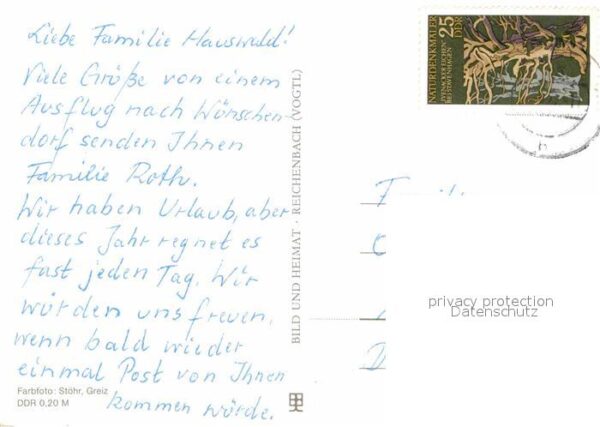 Liebe Familie Hauswald!
Viele Grüße von einem
Ausflug nach Wünschen-
dorf senden Ihnen
Familie Roth.
Wir haben Urlaub, aber
dieses Jahr regnet es
fast jeden Tag. Wir
würden uns freuen,
wenn bald wieder
einmal Post von Ihnen
kommen würde.
Farbfoto: Stöhr, Greiz
DDR 0,20 M
BILD UND HEIMAT · REICHENBACH (VOGTL)
NATURDENKMÄLER
DDR
25
IVENACKER EICHEN
BEI STAVENHAGEN
privacy protection
Datenschutz